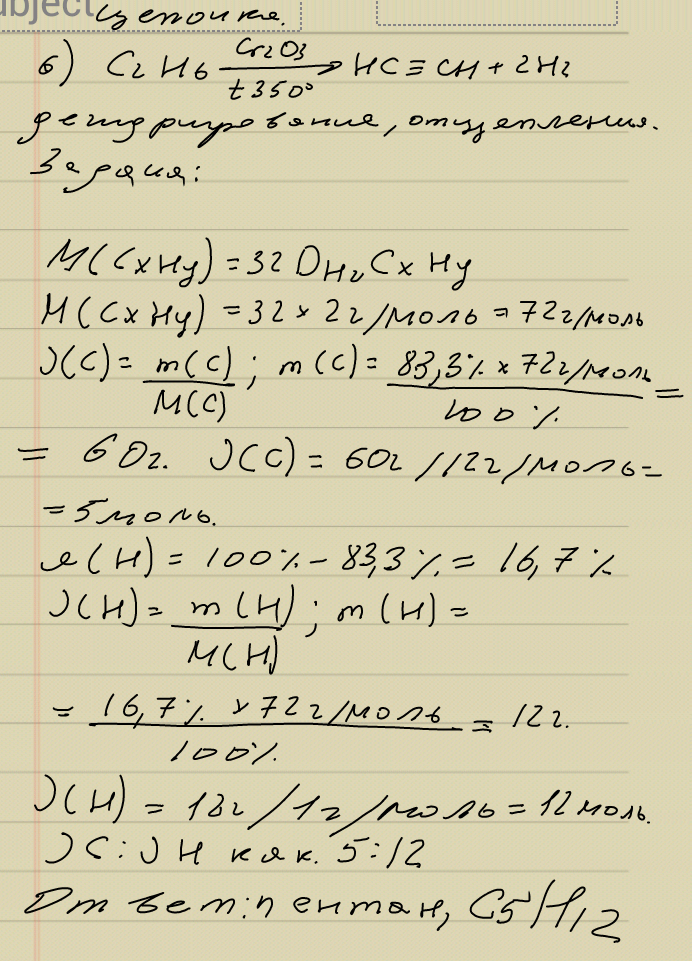 ubject цепочке.
б) C2H6 Cr2O3 t 350° → HC≡CH + 2H2
дегидрирование, отщепления.
Задача:
M(CxHy) = 32 DH2 CxHy
M(CxHy) = 32 × 2г/моль = 72г/моль
ν(C) = m(C)/M(C); m(C) = 83,3% × 72г/моль / 100% =
= 60г. ν(C) = 60г/12г/моль=
=5моль.
(H) = 100% - 83,3% = 16,7%
ν(H) = m(H)/M(H); m(H) =
= 16,7% × 72г/моль / 100% = 12г.
ν(H) = 12г/1г/моль = 12моль.
νC:νH как. 5:12
Ответ: пентан, C5H12